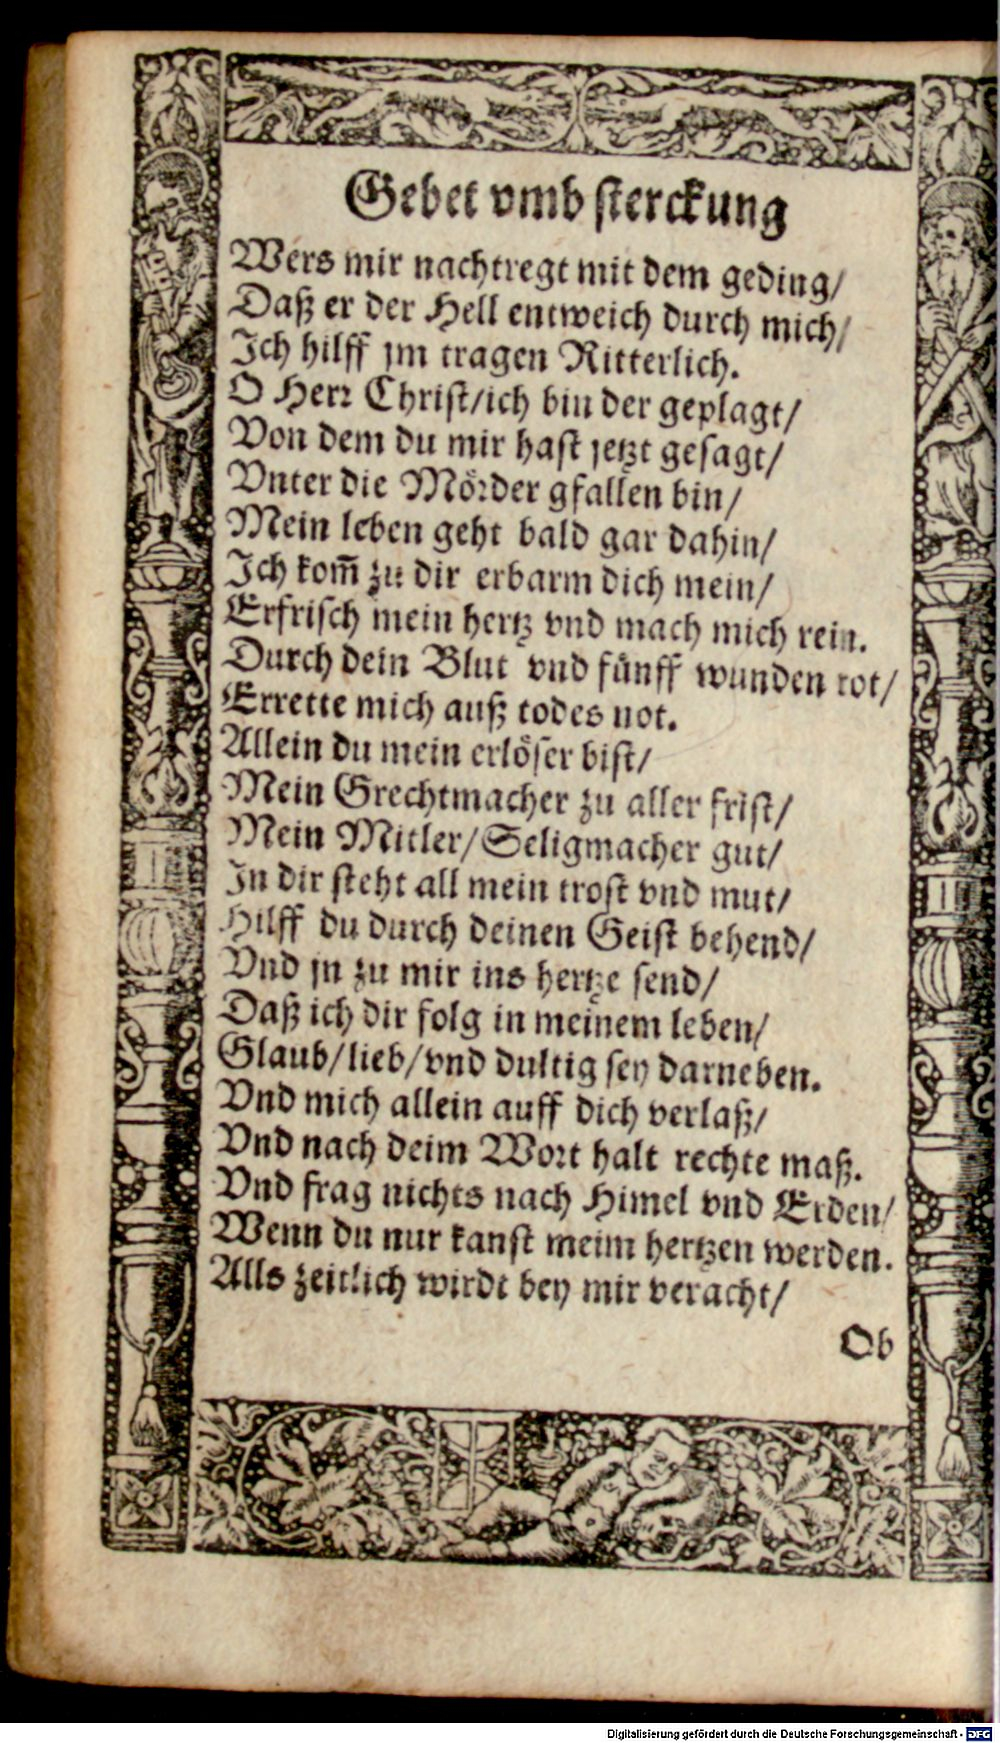 Gebet vmb sterckung
Wers mir nachtregt mit dem geding/
Daß er der Hell entweich durch mich/
Ich hilff jm tragen Ritterlich.
O Herr Christ/ich bin der geplagt/
Von dem du mir hast jetzt gesagt/
Vnter die Mörder gfallen bin/
Mein leben geht bald gar dahin/
Ich kom̄ zu dir erbarm dich mein/
Erfrisch mein hertz vnd mach mich rein.
Durch dein Blut vnd fünff wunden rot/
Errette mich auß todes not.
Allein du mein erlöser bist/
Mein Grechtmacher zu aller frist/
Mein Mitler/Seligmacher gut/
In dir steht all mein trost vnd mut/
Hilff du durch deinen Geist behend/
Vnd jn zu mir ins hertze send/
Daß ich dir folg in meinem leben/
Glaub/lieb/vnd dultig sey darneben.
Vnd mich allein auff dich verlaß/
Vnd nach deim Wort halt rechte maß.
Vnd frag nichts nach Himel vnd Erden/
Wenn du nur kanst meim hertzen werden.
Alls zeitlich wirdt bey mir veracht/
Ob
Digitalisierung gefördert durch die Deutsche Forschungsgemeinschaft - DFG